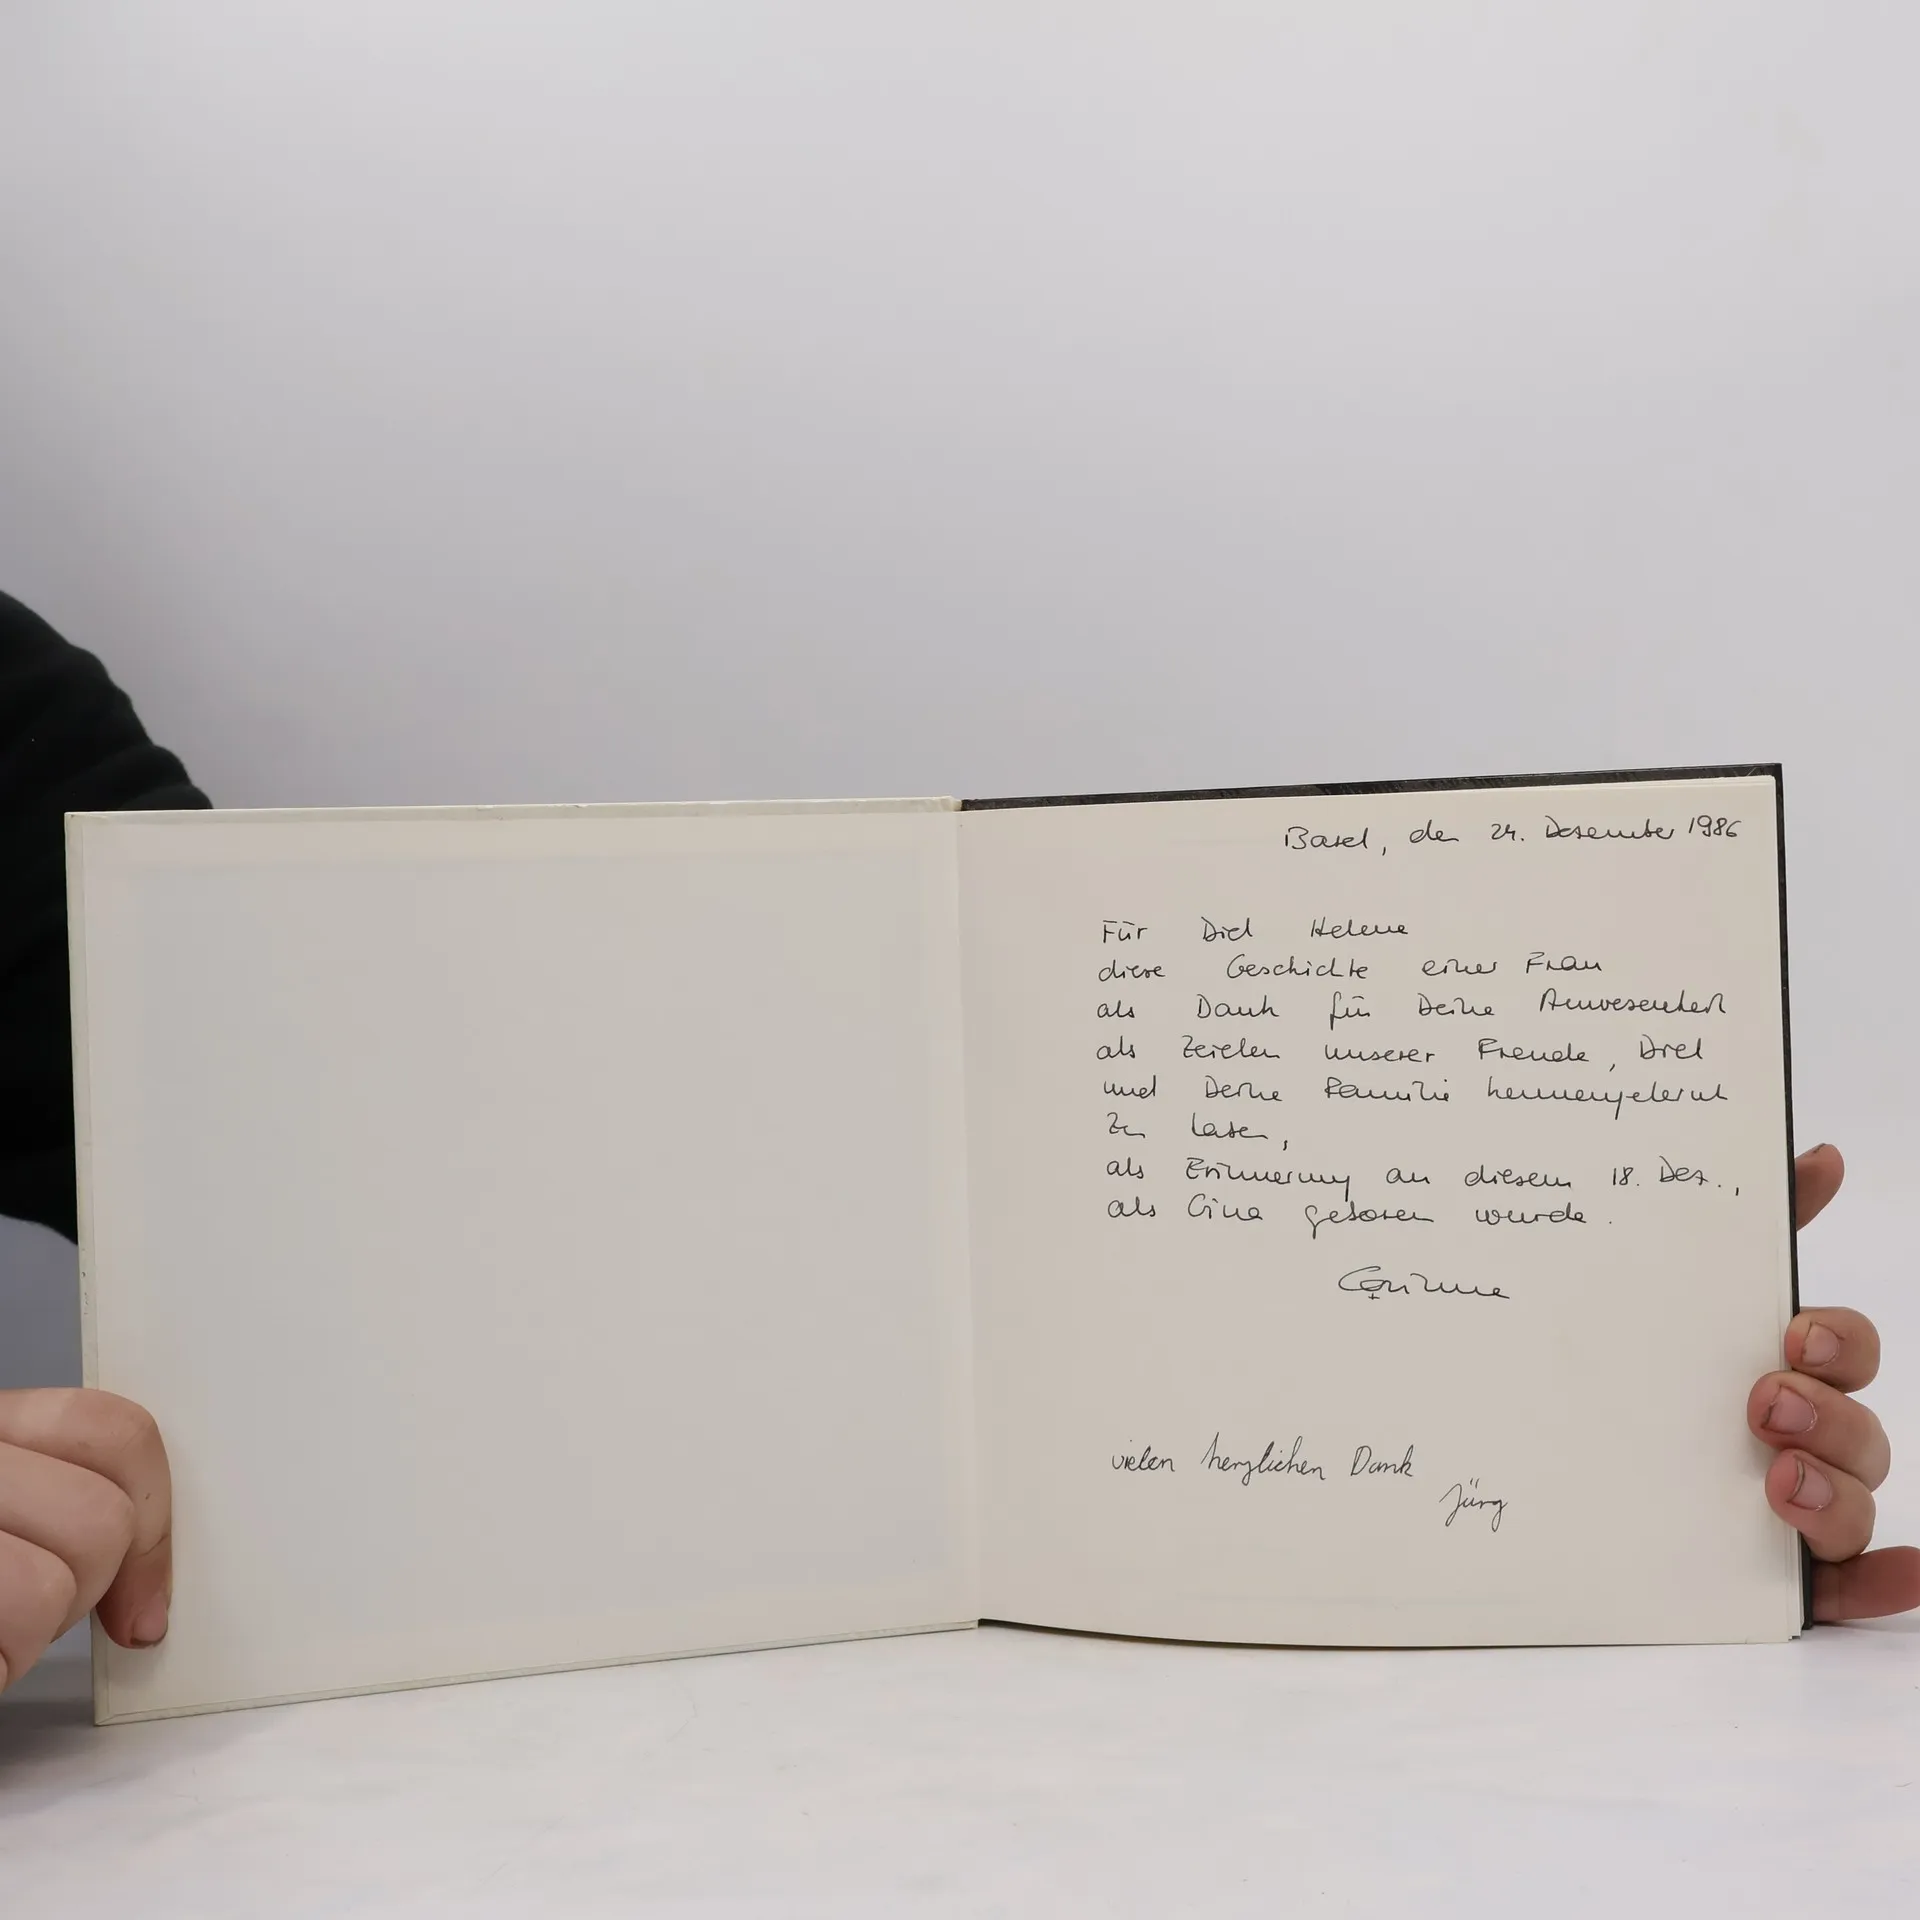 Basel, den 24. Dezember 1986
Für Dich Helene
diese Geschichte einer Frau
als Dank für Deine Anwesenheit
als Zeichen unserer Freude, Dich
und Deine Familie kennengelernt
zu haben,
als Erinnerung an diesem 18. Dez.,
als Gina geboren wurde.
Corinne
vielen herzlichen Dank
Jürg